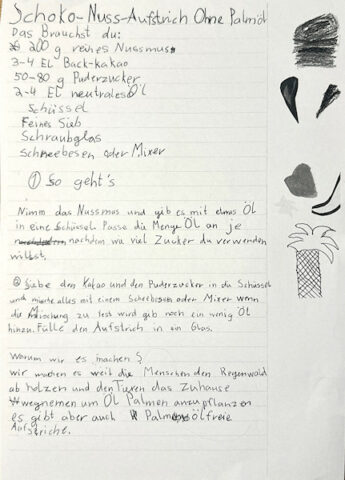 Schoko-Nuss-Aufstrich Ohne Palmöl
Das Brauchst du:
200 g reines Nussmus
3-4 EL Back-kakao
50-80 g Puderzucker
2-4 EL neutrales Öl
Schüssel
Feines Sieb
Schraubglas
Schneebesen oder Mixer
① So geht's
Nimm das Nussmus und gib es mit etwas Öl
in eine Schüssel Passe die Menge Öl an je
nachdem wa viel Zucker du verwenden
willst.
② Siebe den Kakao und den Puderzucker in die Schüssel
und alles mit einem Scheebesen oder Mixer wenn
die Mischung zu fest wird gib noch ein wenig Öl
hinzu. Fülle den Aufstrich in ein Glas.
Warum wir es machen
wir machen es weil die Menschen den Regenwald
ab holzen und den Tieren das Zuhause
wegnemen um Öl Palmen anzupflanzen
es gibt aber auch Palmölfreie
Aufstriche.